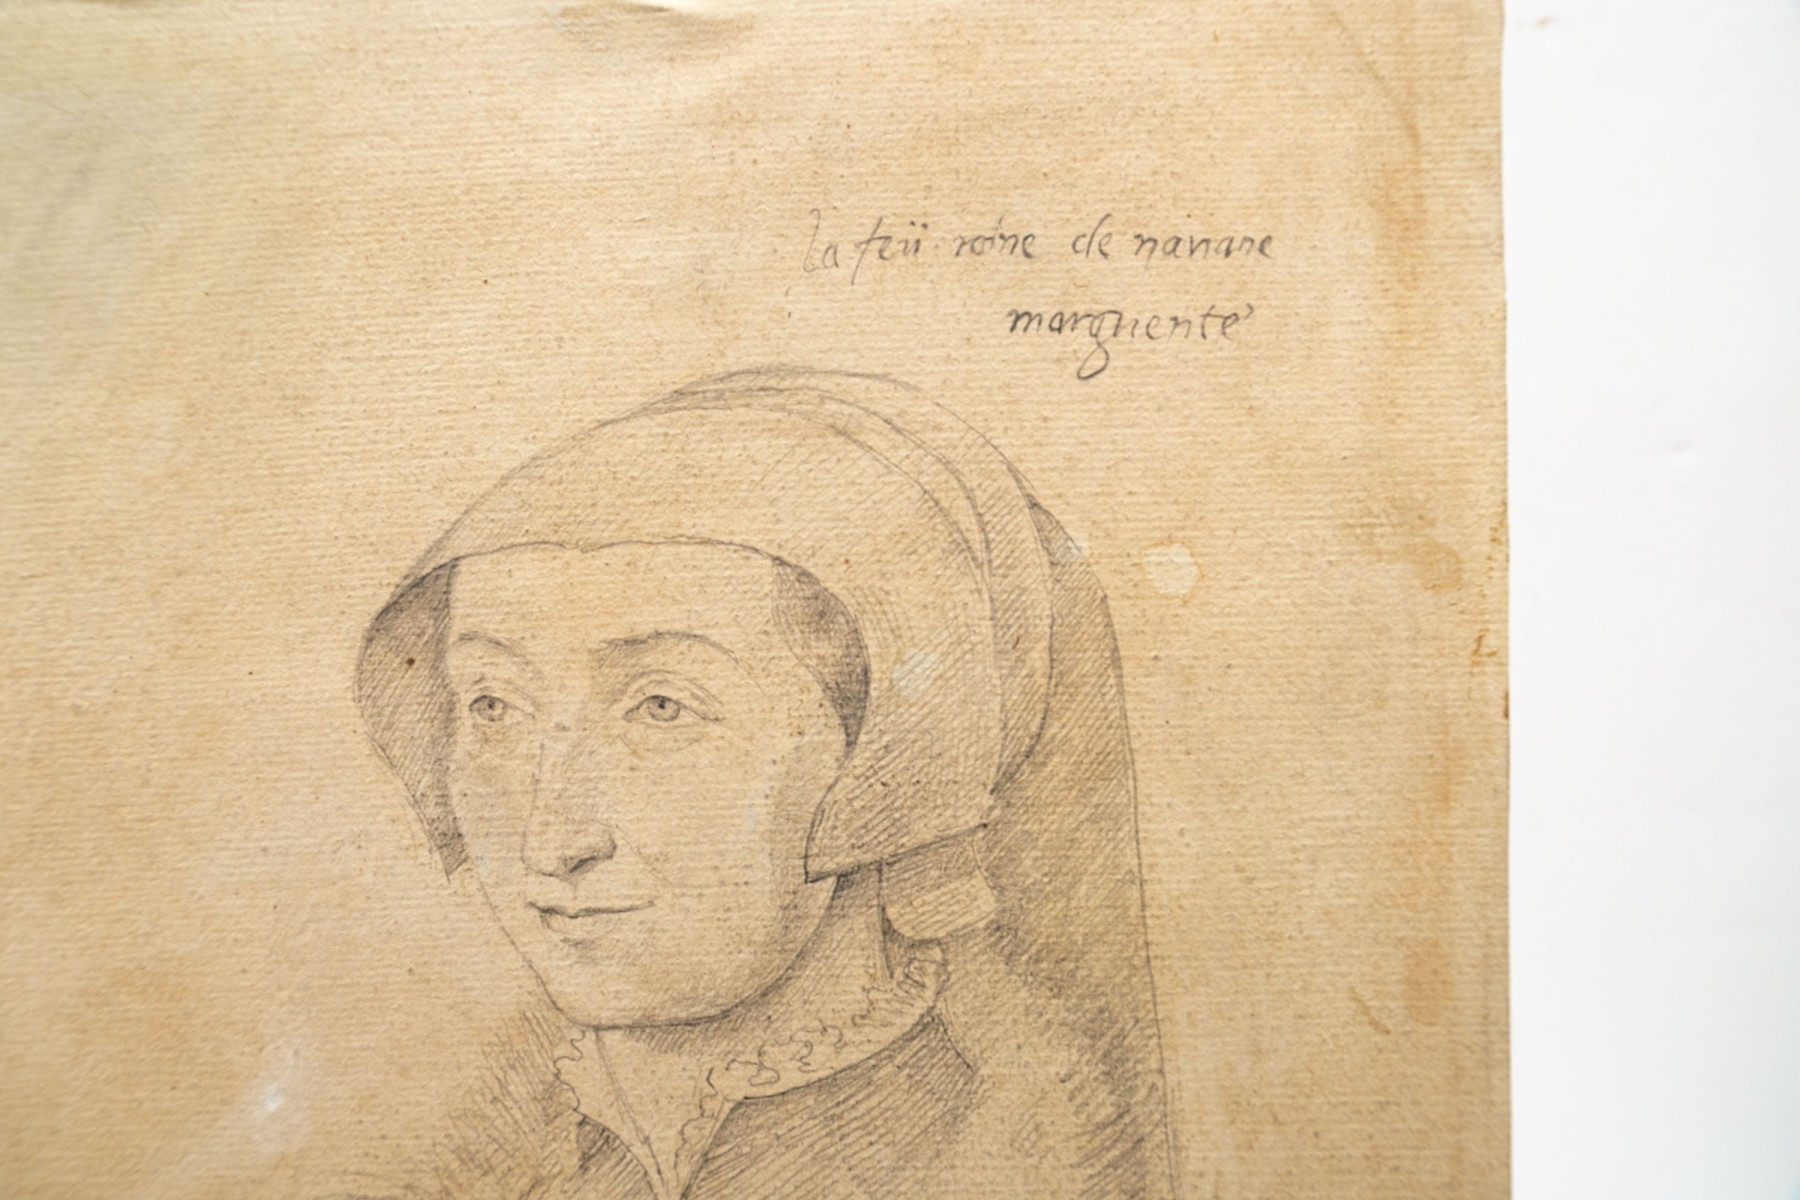 la feü roine de navarre
marguerite